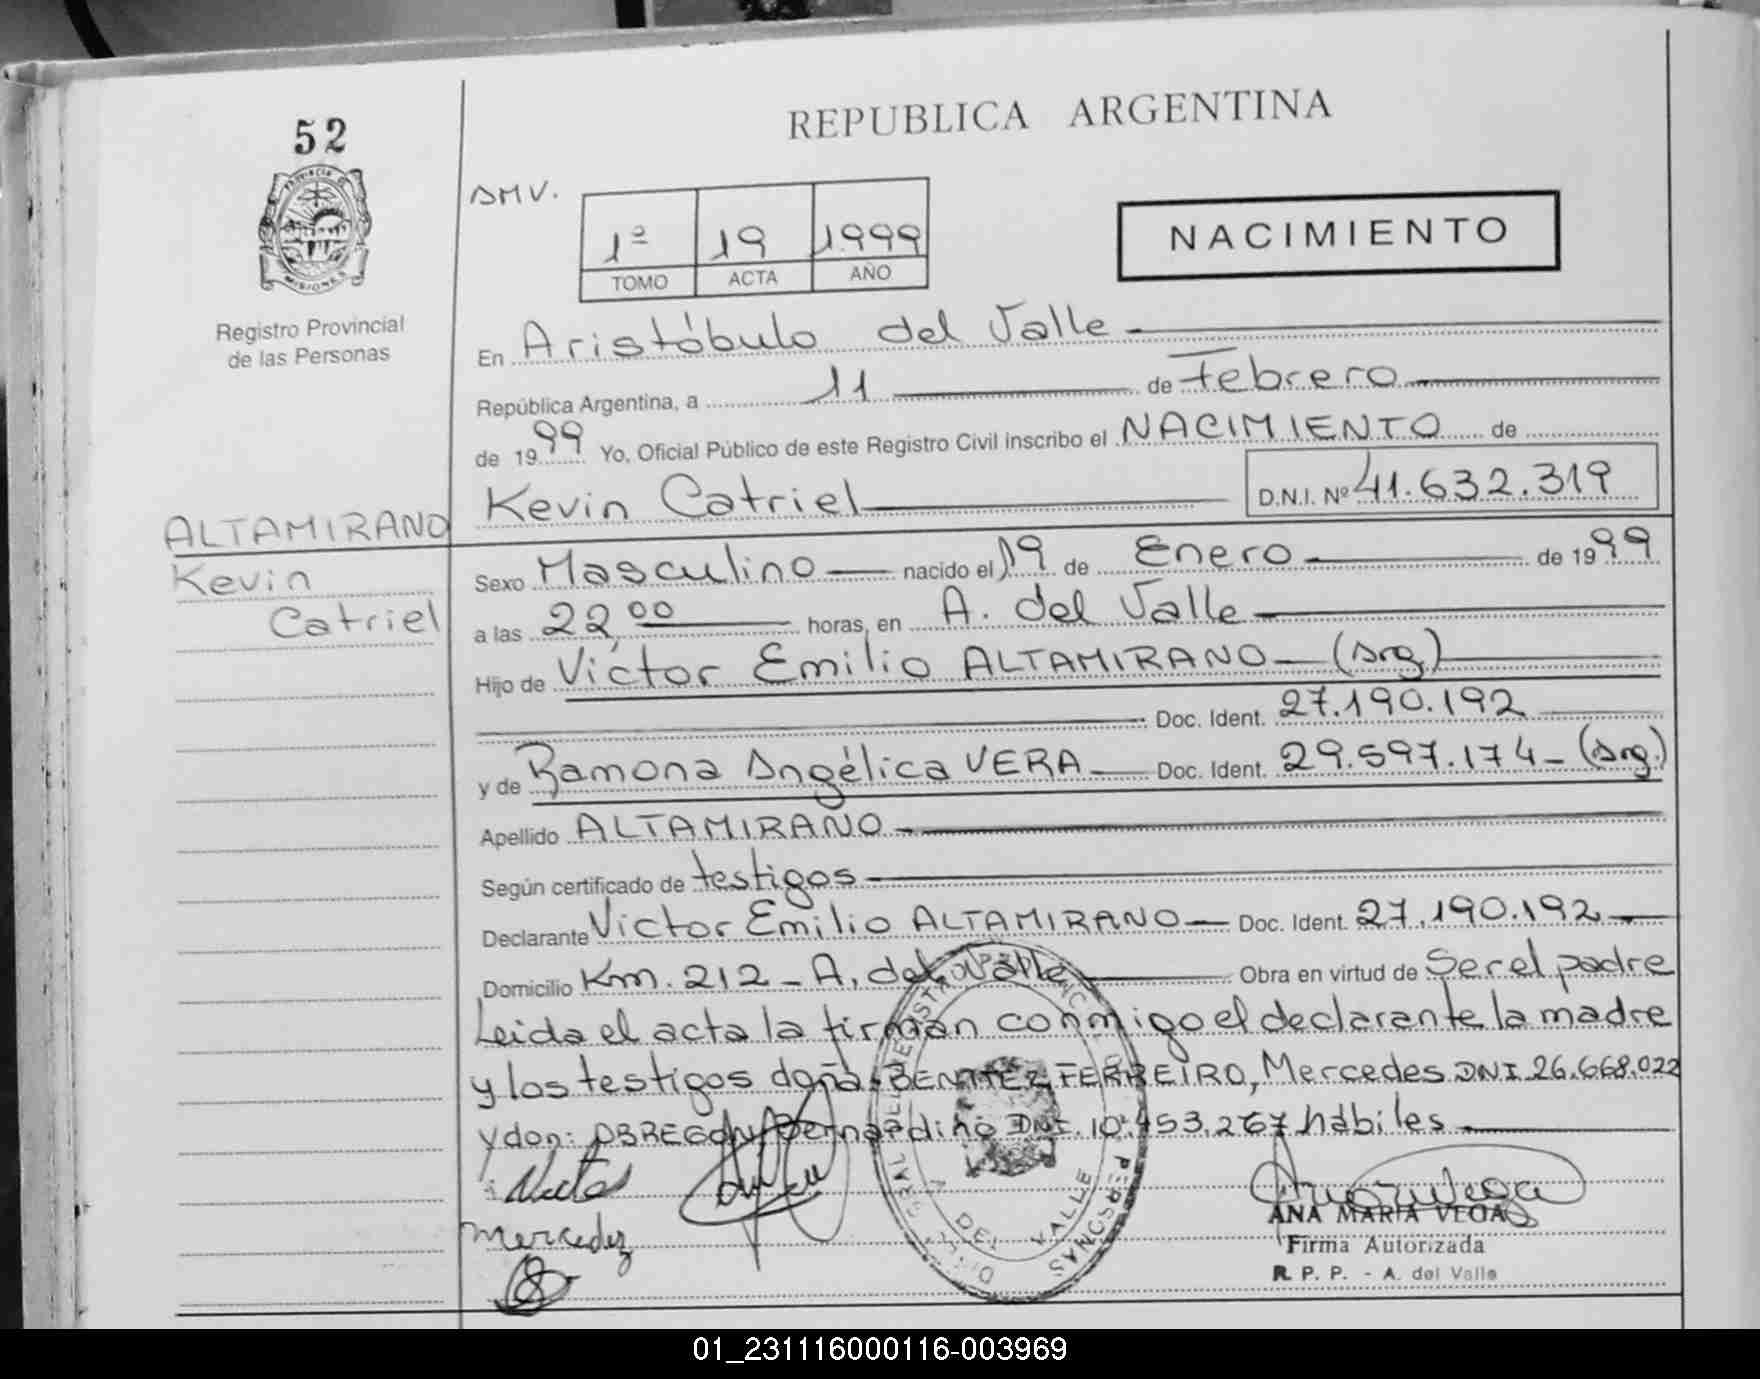 52
REPUBLICA ARGENTINA
PROVINCIA D
MISIONES
AMV.
1º 19 1999
TOMO ACTA AÑO
NACIMIENTO
Registro Provincial
de las Personas
En Aristóbulo del Valle
República Argentina, a 11 de Febrero
de 1999 Yo, Oficial Público de este Registro Civil inscribo el NACIMIENTO de
Kevin Catriel D.N.I. Nº 41.632.319
ALTAMIRANO
Kevin
Catriel
Sexo Masculino nacido el 19 de Enero de 1999
a las 22,00 horas, en A. del Valle
Hijo de Víctor Emilio ALTAMIRANO (Arg.)
Doc. Ident. 27.190.192
y de Ramona Angélica VERA Doc. Ident. 29.597.174 - (Arg.)
Apellido ALTAMIRANO
Según certificado de testigos
Declarante Víctor Emilio ALTAMIRANO Doc. Ident. 27.190.192
Domicilio Km. 212 - A. del Valle Obra en virtud de Ser el padre
Leida el acta la firman conmigo el declarante la madre
y los testigos doña: BENITEZ FERREIRO, Mercedes DNI 26.668.022
y don: OBREGON, Bernardino DNI. 10.453.267 hábiles
Mercedez
A DEL VALLE
PERSONAS
ANA MARIA VEGA
Firma Autorizada
R. P. P. - A. del Valle
01_231116000116-003969